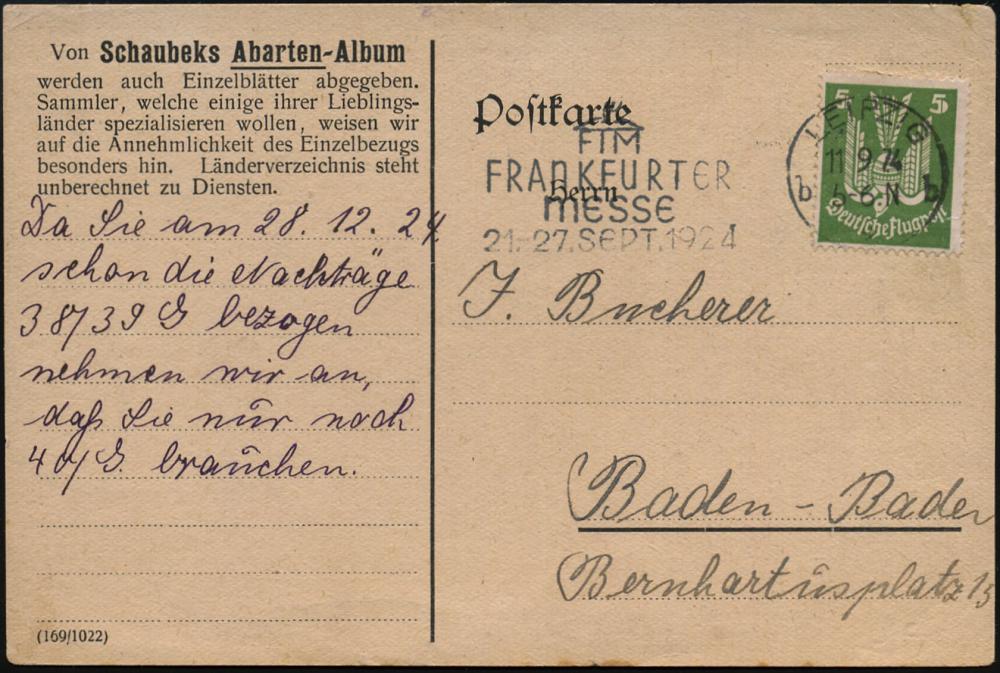 Von Schaubeks Abarten-Album
werden auch Einzelblätter abgegeben.
Sammler, welche einige ihrer Lieblings-
länder spezialisieren wollen, weisen wir
auf die Annehmlichkeit des Einzelbezugs
besonders hin. Länderverzeichnis steht
unberechnet zu Diensten.
Da Sie am 28. 12. 24
schon die Nachträge
38/39 G bezogen
nehmen wir an,
daß Sie nur noch
40/G. brauchen.
(169/1022)
Postkarte
FIM
FRANKFURTER
MESSE
21.-27. SEPT. 1924
Herrn
J. Bucherer
Baden-Baden
Bernhartusplatz 13
5 5
Deutsche Flugpost
LEIPZIG
11 9 24
6-N
b b